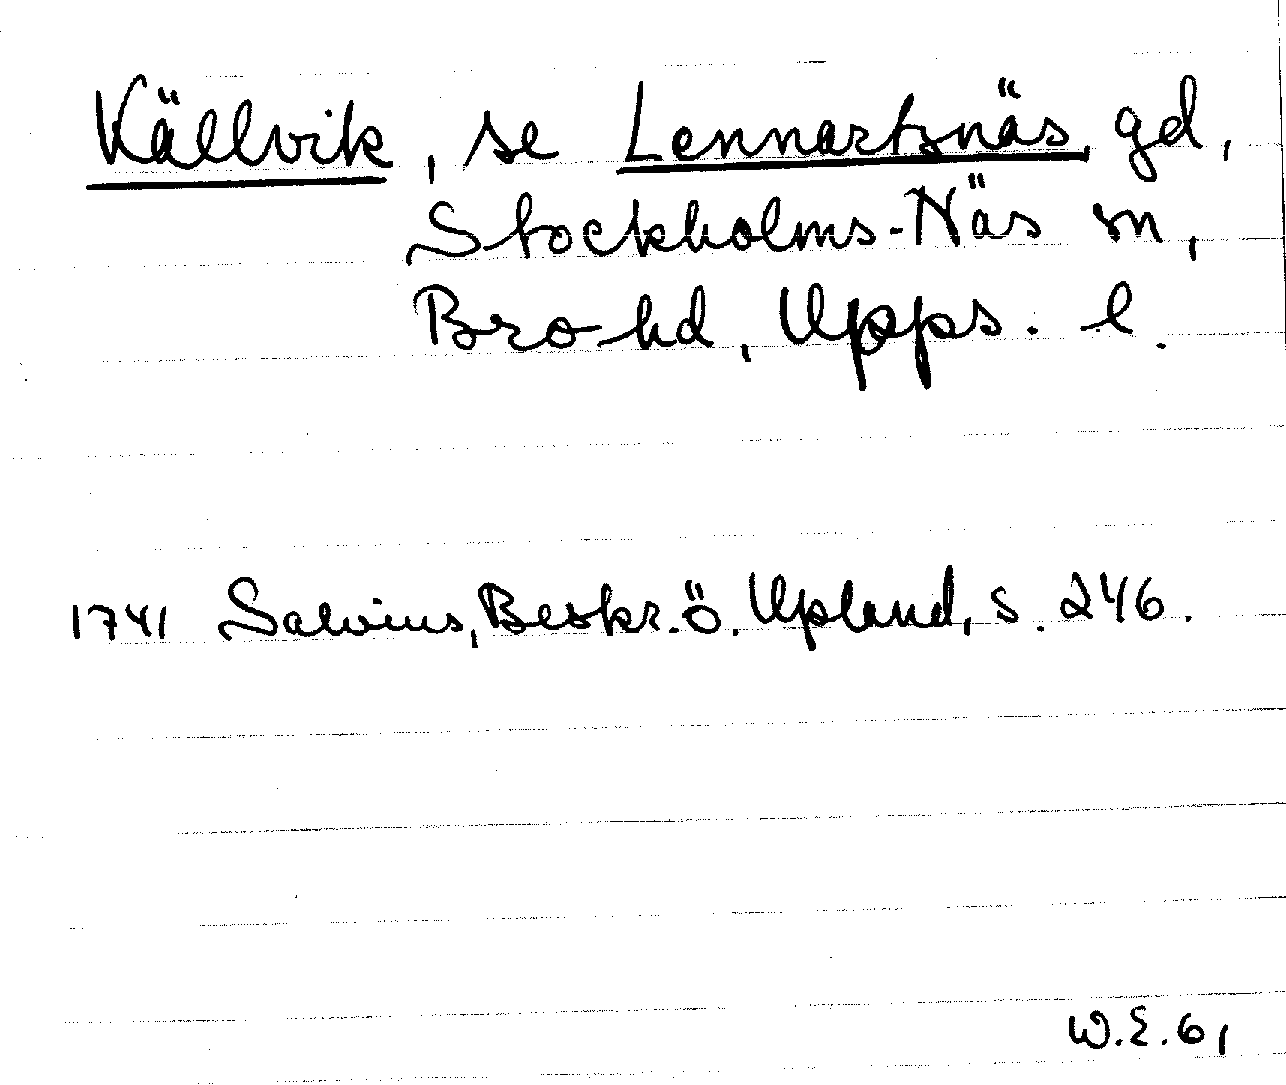 Källvik, se Lennartsnäs, gd,
Stockholms-Näs sn,
Bro hd, Upps. l.
1741 Salvius, Beskr. ö. Upland, s. 246.
W.E. 61